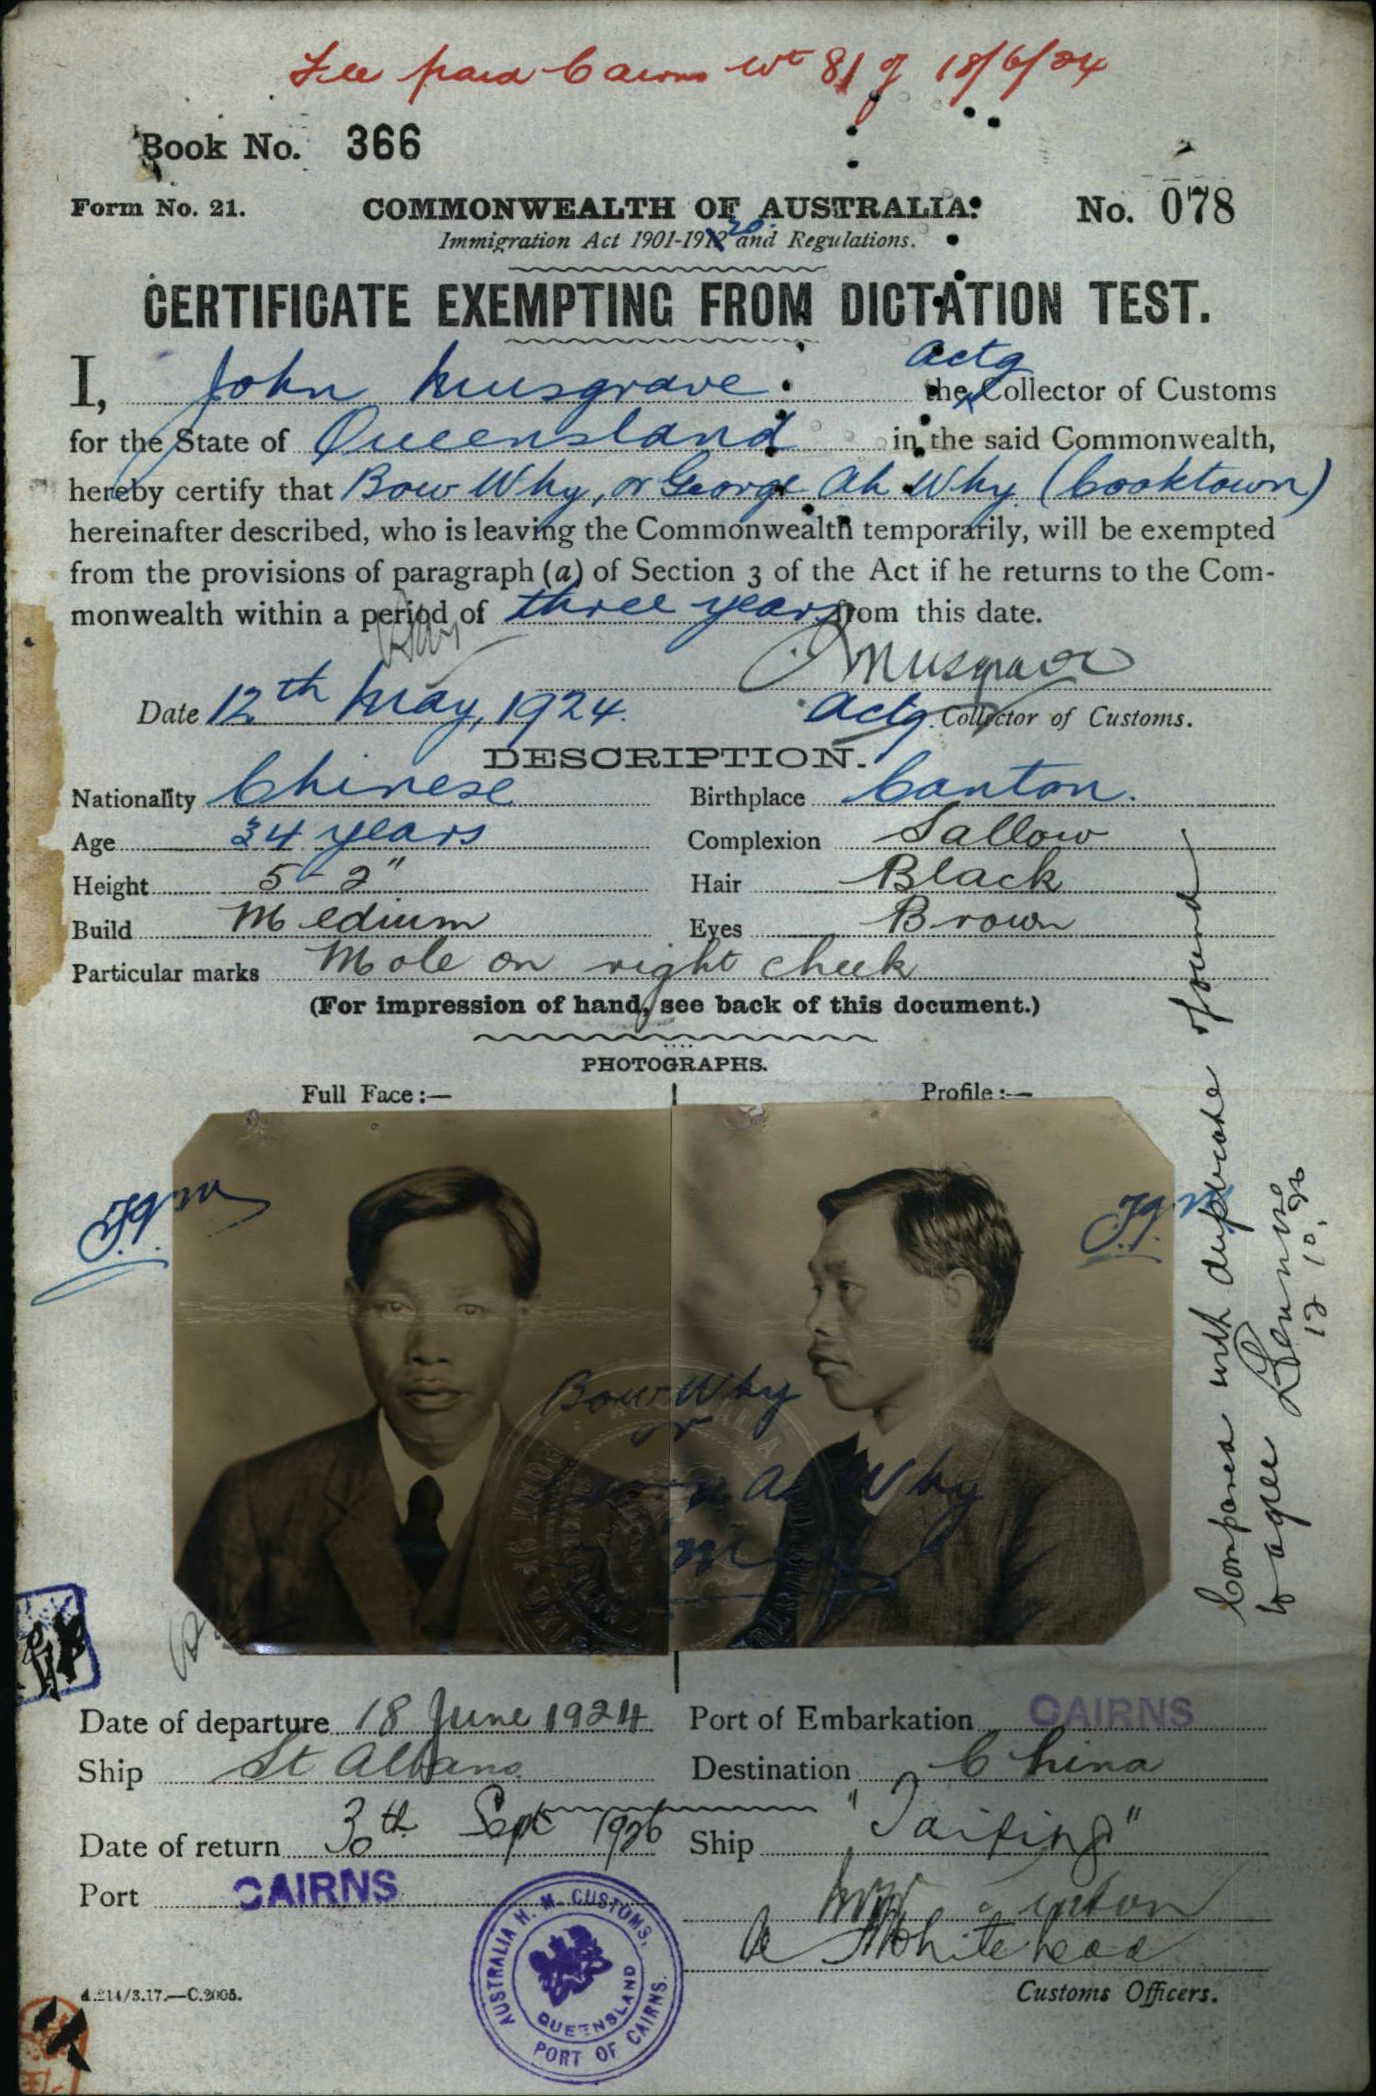 Fee paid Cairns 81 of 18/6/24
Book No. 366
Form No. 21.
COMMONWEALTH OF AUSTRALIA.
No. 078
Immigration Act 1901-1912 20. and Regulations.
CERTIFICATE EXEMPTING FROM DICTATION TEST.
I, John Musgrave actg the Collector of Customs
for the State of Queensland in the said Commonwealth,
hereby certify that Bow Why, or George Ah Why (Cooktown)
hereinafter described, who is leaving the Commonwealth temporarily, will be exempted
from the provisions of paragraph (a) of Section 3 of the Act if he returns to the Com-
monwealth within a period of three years from this date.
Musgrave
Date 12th May, 1924. Actg. Collector of Customs.
DESCRIPTION.
Nationality Chinese Birthplace Canton.
Age 34 years Complexion Sallow
Height 5-2" Hair Black
Build Medium Eyes Brown
Particular marks Mole on right cheek
(For impression of hand, see back of this document.)
PHOTOGRAPHS.
Full Face:— Profile:—
Compared with duplicate & found
to agree
12.10.26
Bow Why
or
George Ah Why
Date of departure 18 June 1924 Port of Embarkation CAIRNS
Ship St Albans Destination China
Date of return 30th Sept 1926 Ship "Taiping"
Port CAIRNS
Whitehead
AUSTRALIA H. M. CUSTOMS,
QUEENSLAND
PORT OF CAIRNS.
Customs Officers.
A.214/3.17.—C.2005.